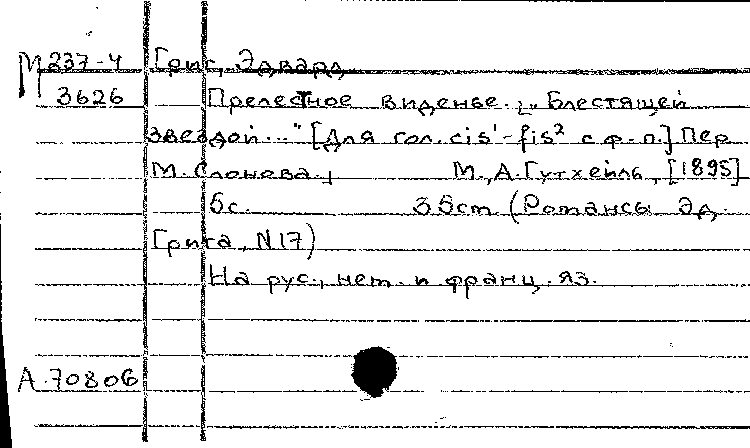 М 237-4 Григ, Эдвард
3626 Прелестное виденье. „Блестящей
звездой..." [Для гол. cis¹-fis² с ф.-п.] Пер
М. Слонова.
М., А. Гутхейль, [1895]
5с. 35cm (Романсы Эд.
Грига, N17)
На рус., нем. и франц. яз.
А.70806